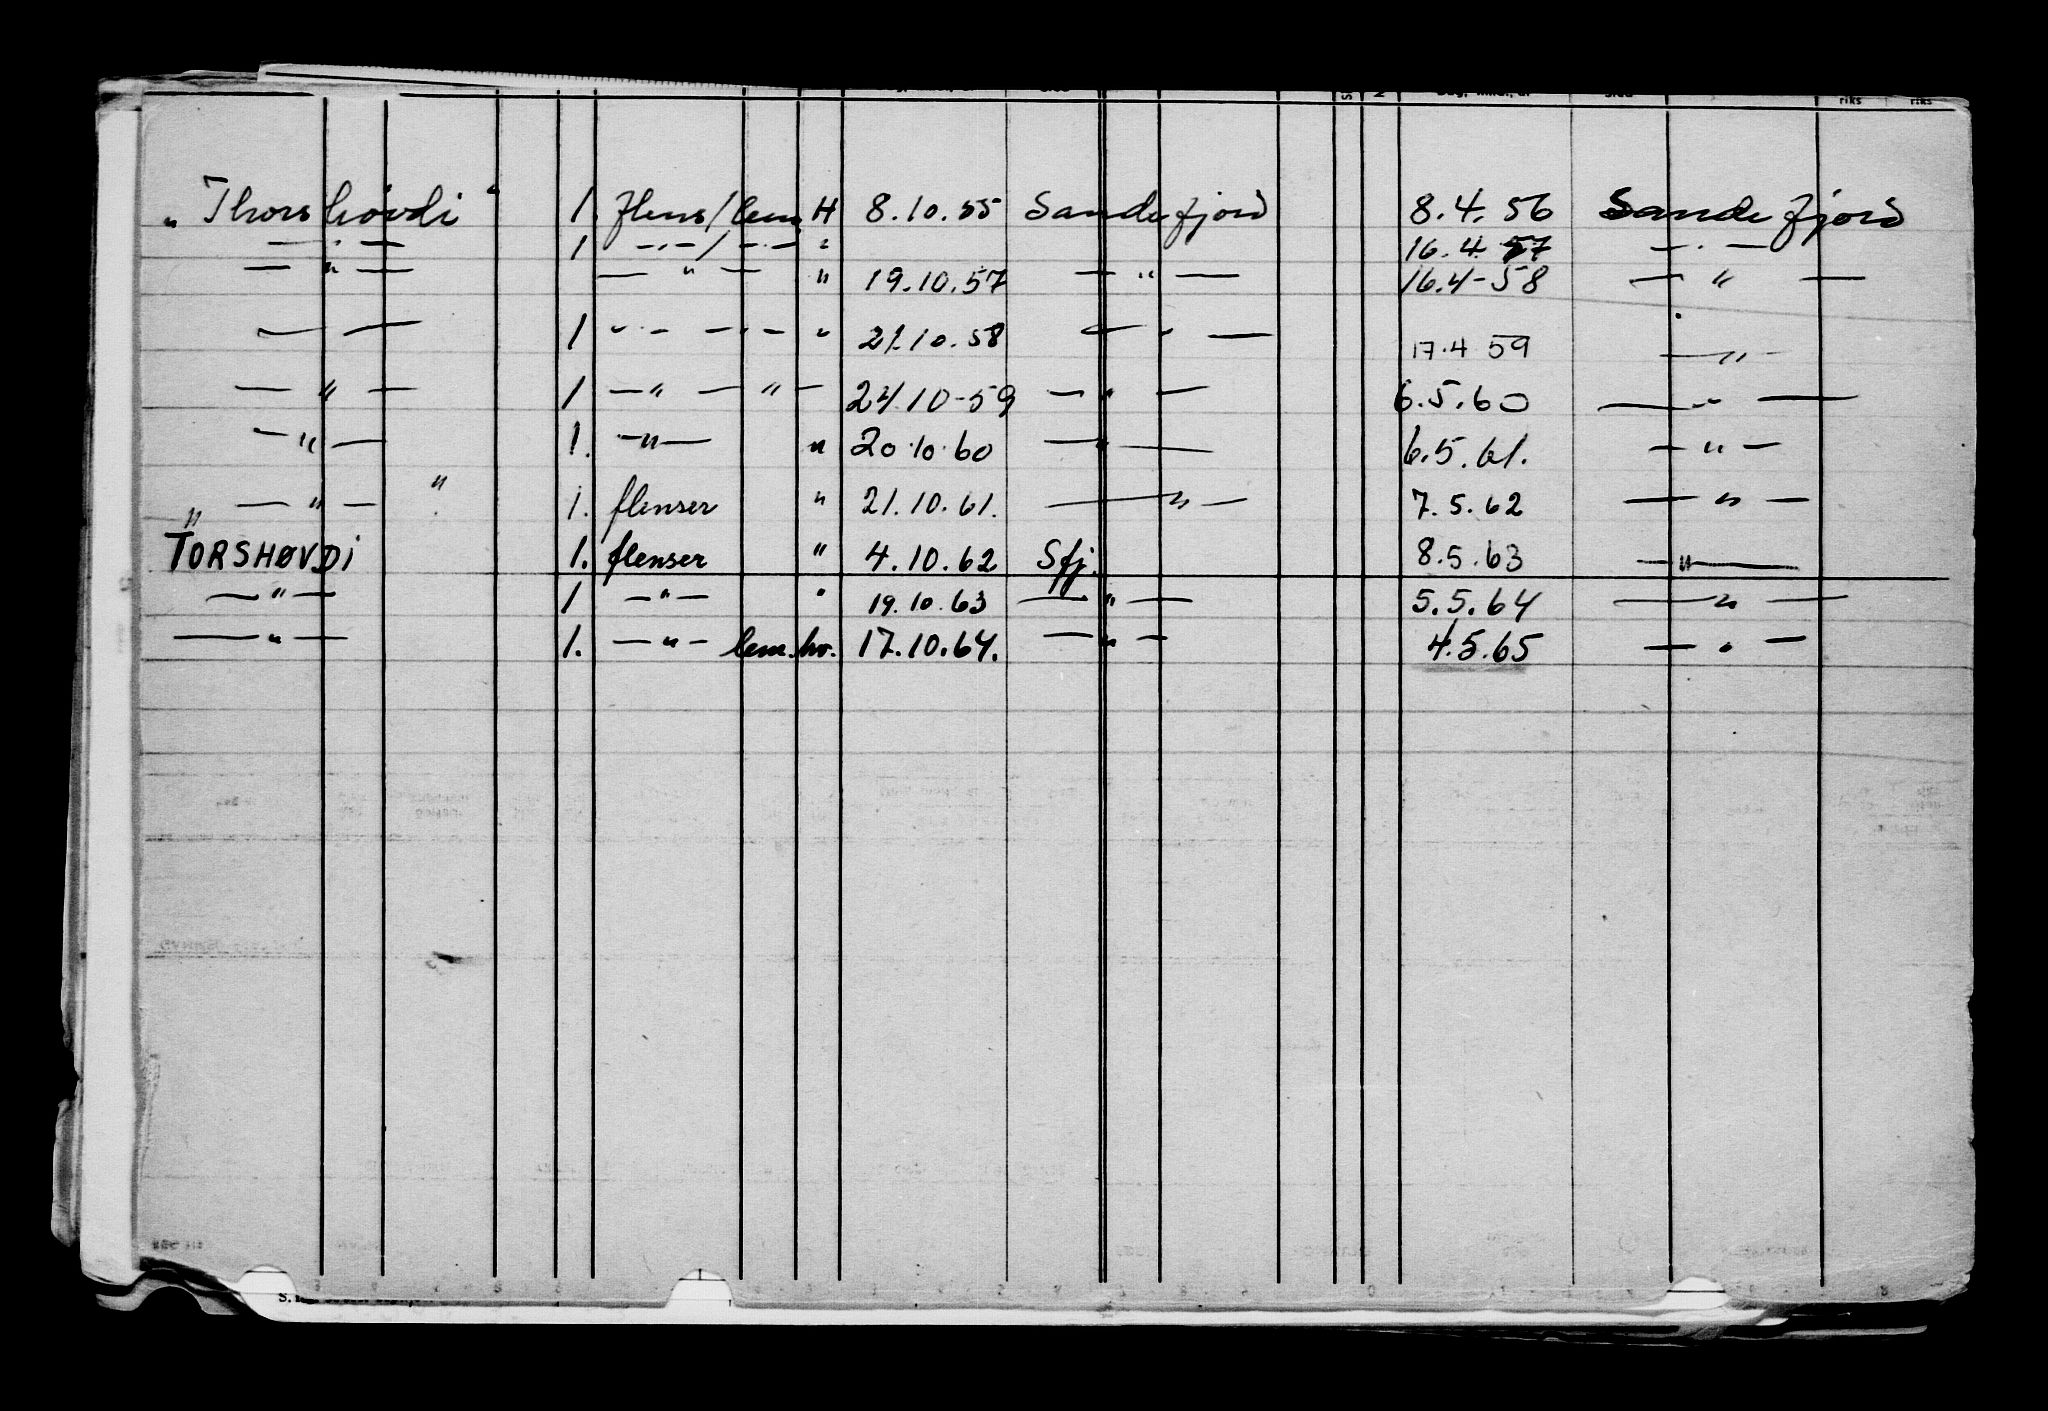 „Thorshövdi“ 1. flens/lem H 8.10.55 Sandefjord 8.4.56 Sandefjord
— " — 1 — " — / — " — " 16.4.57 — " —
— " — — " — " 19.10.57 — " — 16.4-58 — " —
— — 1 " — — " — " 21.10.58 — " — 17.4 59 — " —
— " — 1 — " — " — 24.10-59 — " — 6.5.60 — " —
— " — 1. — " — " 20.10.60 — " — 6.5.61. — " —
— " — " 1. flenser " 21.10.61. — " — 7.5.62 — " —
„TORSHØVDI 1. flenser " 4.10.62 Sfj. 8.5.63 — " —
— " — 1 — " — " 19.10.63 — " — 5.5.64 — " —
— " — 1. — " — lem.hv. 17.10.64. — " — 4.5.65 — " —